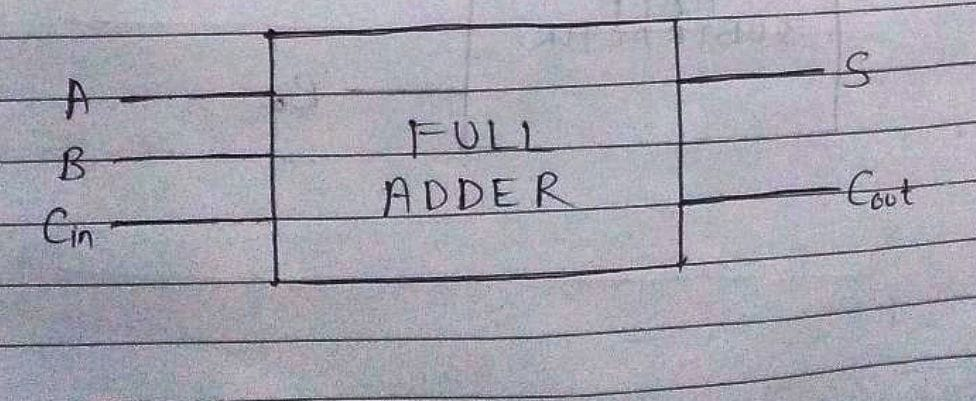 A
B
Cin
FULL
ADDER
S
Cout